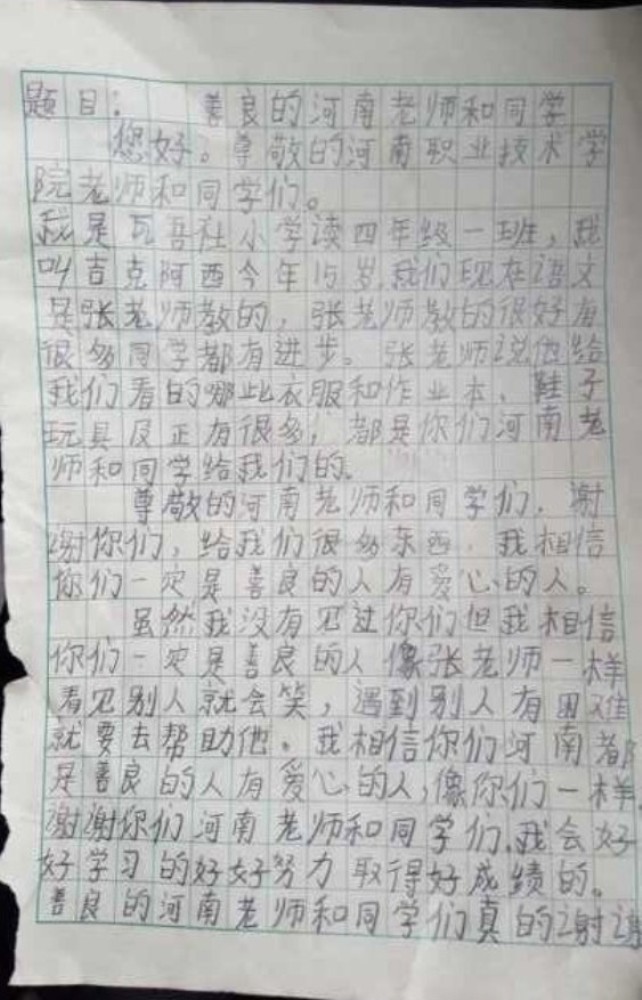 题目：善良的河南老师和同学
您好。尊敬的河南职业技术学
院老师和同学们。
我是瓦吾社小学读四年级一班，我
叫吉克阿西今年15岁，我们现在语文
是张老师教的，张老师教的很好有
很多同学都有进步。张老师说他给
我们看的哪些衣服和作业本、鞋子
玩具反正有很多，都是你们河南老
师和同学给我们的。
尊敬的河南老师和同学们，谢
谢你们，给我们很多东西，我相信
你们一定是善良的人有爱心的人。
虽然我没有见过你们但我相信
你们一定是善良的人像张老师一样
看见别人就会笑，遇到别人有困难
就要去帮助他。我相信你们河南都
是善良的人有爱心的人，像你们一样
谢谢你们河南老师和同学们，我会好
好学习的好好努力取得好成绩的。
善良的河南老师和同学们真的谢谢